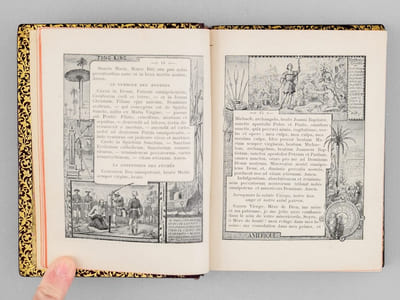 TONG-KING
— 10 —
Sancta Maria, Mater Dei, ora pro nobis
peccatoribus nunc et in hora mortis nostræ.
LE SYMBOLE DES APÔTRES
Credo in Deum, Patrem omnipotentem,
Creatorem cœli et terræ; — et in Jesum
Christum, Filium ejus unicum, Dominum
nostrum, — qui conceptus est de Spiritu
Sancto, natus ex Maria Virgine, — passus
sub Pontio Pilato, crucifixus, mortuus et
sepultus, — descendit ad inferos, tertia die
resurrexit a mortuis, — ascendit ad cœlos,
sedet ad dexteram Patris omnipotentis, —
inde venturus est judicare vivos et mortuos.
Credo in Spiritum Sanctum, — Sanctam
Ecclesiam catholicam, Sanctorum commu-
nionem, — remissionem peccatorum, —
carnis resurrectionem, — vitam æternam.
LA CONFESSION DES PÉCHÉS
Confiteor Deo omnipotenti, beatæ Mariæ
semper virgini, beato
— 11 —
Michaeli archangelo, beato Joanni Baptistæ,
sanctis apostolis Petro et Paulo, omnibus
sanctis, quia peccavi nimis, cogitatione, ver-
bo et opere : mea culpa, mea culpa, mea
maxima culpa. Ideo precor beatam Ma-
riam semper virginem, beatum Michae-
lem archangelum, beatum Joannem Bap-
tistam, sanctos apostolos Petrum et Paulum,
omnes sanctos, orare pro me ad Dominum
Deum nostrum. Misereatur nostri omnipo-
tens Deus, et, dimissis peccatis nostris,
perducat nos ad vitam æternam. Amen.
Indulgentiam, absolutionem et remissio-
nem peccatorum nostrorum tribuat nobis
omnipotens et misericors Dominus. Amen.
Invoquons la sainte Vierge, notre bon
ange et notre saint patron.
Sainte Vierge, Mère de Dieu, ma mère
et ma patronne, je me jette avec confiance
dans le sein de votre miséricorde. Soyez,
ô Mère de bonté! mon refuge dans mes be-
soins, ma consolation dans mes peines, et
AMÉRIQUE